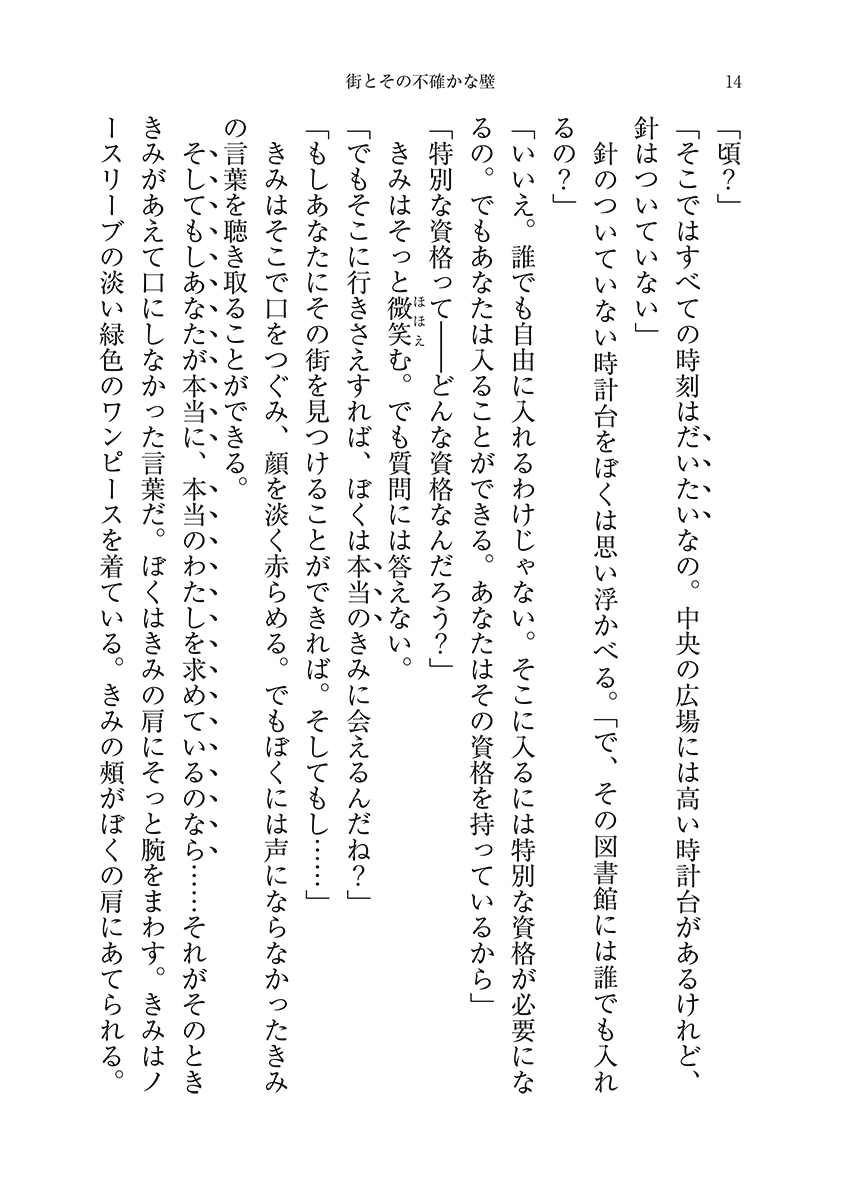 街とその不確かな壁
14
「頃？」
「そこではすべての時刻はだいたいなの。中央の広場には高い時計台があるけれど、
針はついていない」
針のついていない時計台をぼくは思い浮かべる。「で、その図書館には誰でも入れ
るの？」
「いいえ。誰でも自由に入れるわけじゃない。そこに入るには特別な資格が必要にな
るの。でもあなたは入ることができる。あなたはその資格を持っているから」
「特別な資格って――どんな資格なんだろう？」
きみはそっと微笑む。でも質問には答えない。
ほほえ
「でもそこに行きさえすれば、ぼくは本当のきみに会えるんだね？」
「もしあなたにその街を見つけることができれば。そしてもし……」
きみはそこで口をつぐみ、顔を淡く赤らめる。でもぼくには声にならなかったきみ
の言葉を聴き取ることができる。
そしてもしあなたが本当に、本当のわたしを求めているのなら……それがそのとき
きみがあえて口にしなかった言葉だ。ぼくはきみの肩にそっと腕をまわす。きみはノ
ースリーブの淡い緑色のワンピースを着ている。きみの頰がぼくの肩にあてられる。